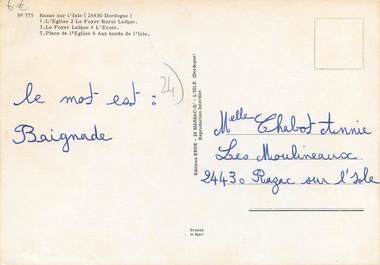 6€
N° 575 RAZAC sur l'Isle (24430 Dordogne)
1.L'Eglise 2 Le Foyer Rural Laïque.
3.Le Foyer Laïque 4 L'Ecole.
5.Place de l'Eglise 6 Aux bords de l'Isle.
le mot est :
Baignade
24)
Editions RENE - 24 MARSAC-S/-L'ISLE (Dordogne)
Reproduction Interdite
Melle Chabot Annie
Les Moulineaux
24430 Razac sur l'Isle
Printed
in Spain